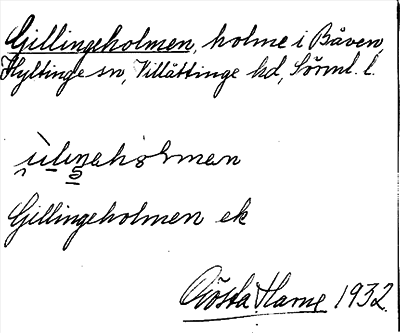 Gillingeholmen, holme i Båven,
Hyltinge sn, Villåttinge hd, Sörml. l.
Gillingeholmen ek
Gösta Harne 1932.